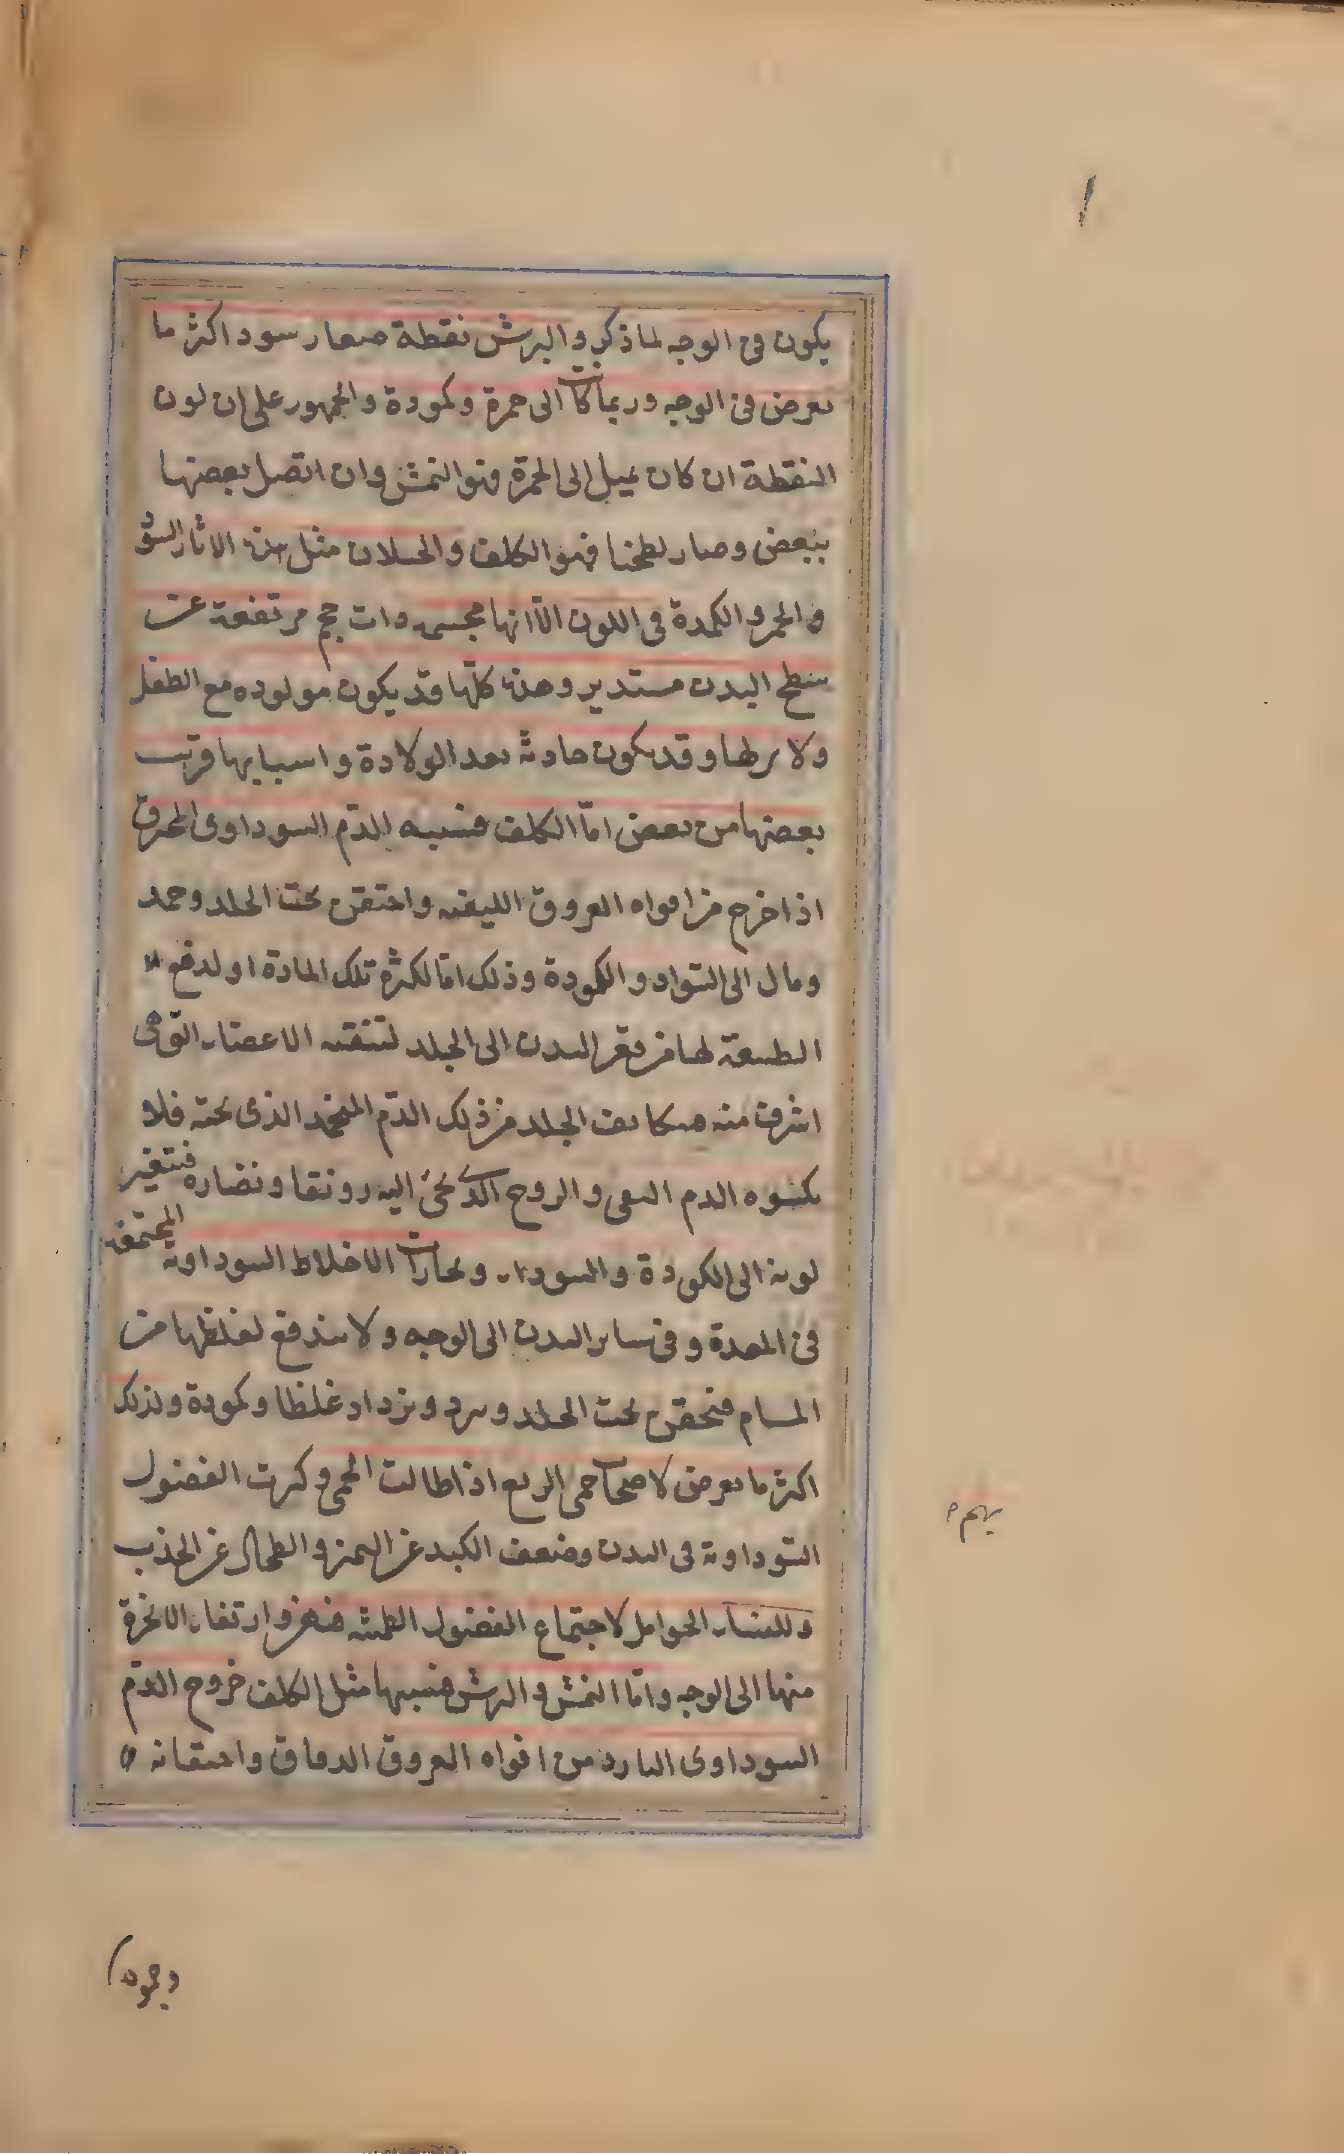 يكون فى الوجه لما ذكر والبرش نقطة صغار سود اكثر ما
يعرض فى الوجه وربما كانت الى حمرة وكمودة والجمهور على ان لون
النقطة ان كان يميل الى الحمرة فهو النمش وان اتصل بعضها
ببعض وصار لطخا فهو الكلف والخيلان مثل هذه الاثار السود
والحمر والكمدة فى اللون الا انها مجسمه ذات حجم مرتفعة عن
سطح البدن مستدير وهذه كلها قد يكون مولوده مع الطفل
ولا وقد يكون حادثة بعد الولادة واسبابها قريب
بعضها من بعض اما الكلف فسببه الدم السوداوى المحرق
اذا خرج من افواه العروق الليفيه واحتقن تحت الجلد وجمد
ومال الى السواد والكمودة وذلك اما لكثرة تلك المادة او لدفع
الطبيعة لها من قعر البدن الى الجلد لتنقيه الاعضاء التى هى
اشرف منه الجلد من ذلك الدم المنجمد الذى تحته فلا
يكسوه الدم النقى والروح الذى يجئ اليه رونقا ونضاره فيتغير
لونه الى الكمودة والسواد وبخارات الاخلاط السوداوية المجتمعة
فى المعدة وفى ساير البدن الى الوجه ولا يندفع لغلظها من
المسام فيحتقن تحت الجلد ويبرد ويزداد غلظا وكمودة ولذلك
اكثر ما يعرض لاصحاب حمى الربع اذا طالت الحمى وكثرت الفضول
السوداوية فى البدن وضعف الكبد عن التميز والطحال عن الجذب
وللنساء الحوامل لاجتماع الفضول الطمثيه فيهن وارتفاء الابخرة
منها الى الوجه واما النمش والبرش فسببها مثل الكلف خروج الدم
السوداوى البارد من افواه العروق الدقاق واحتقانه